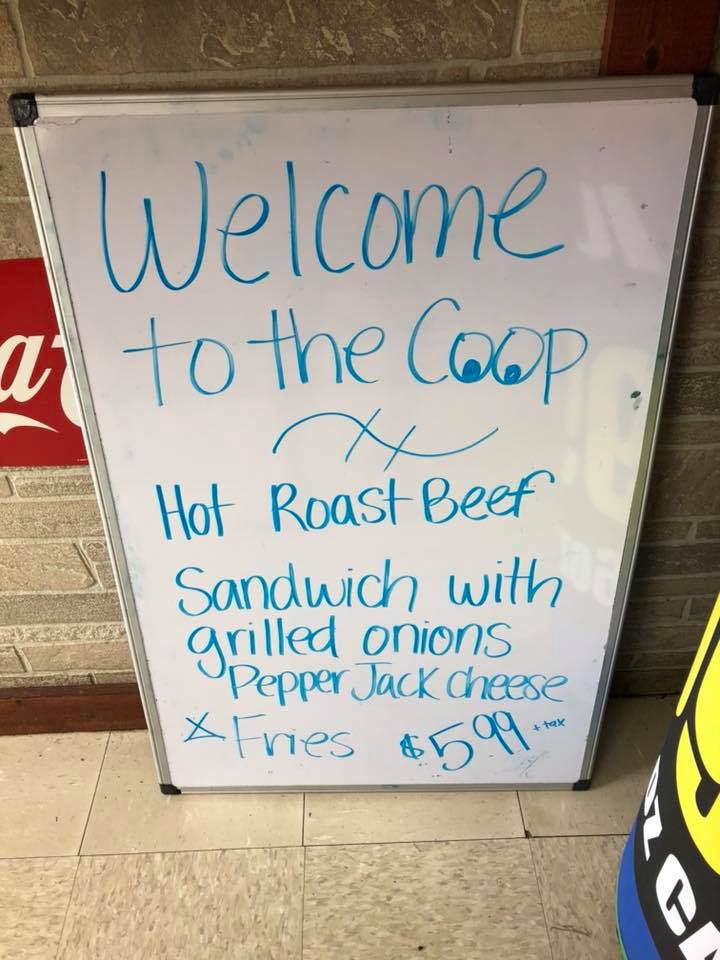 Welcome
to the Coop
Hot Roast Beef
Sandwich with
grilled onions
Pepper Jack cheese
& Fries $5.99 + tax
a
OZ CA